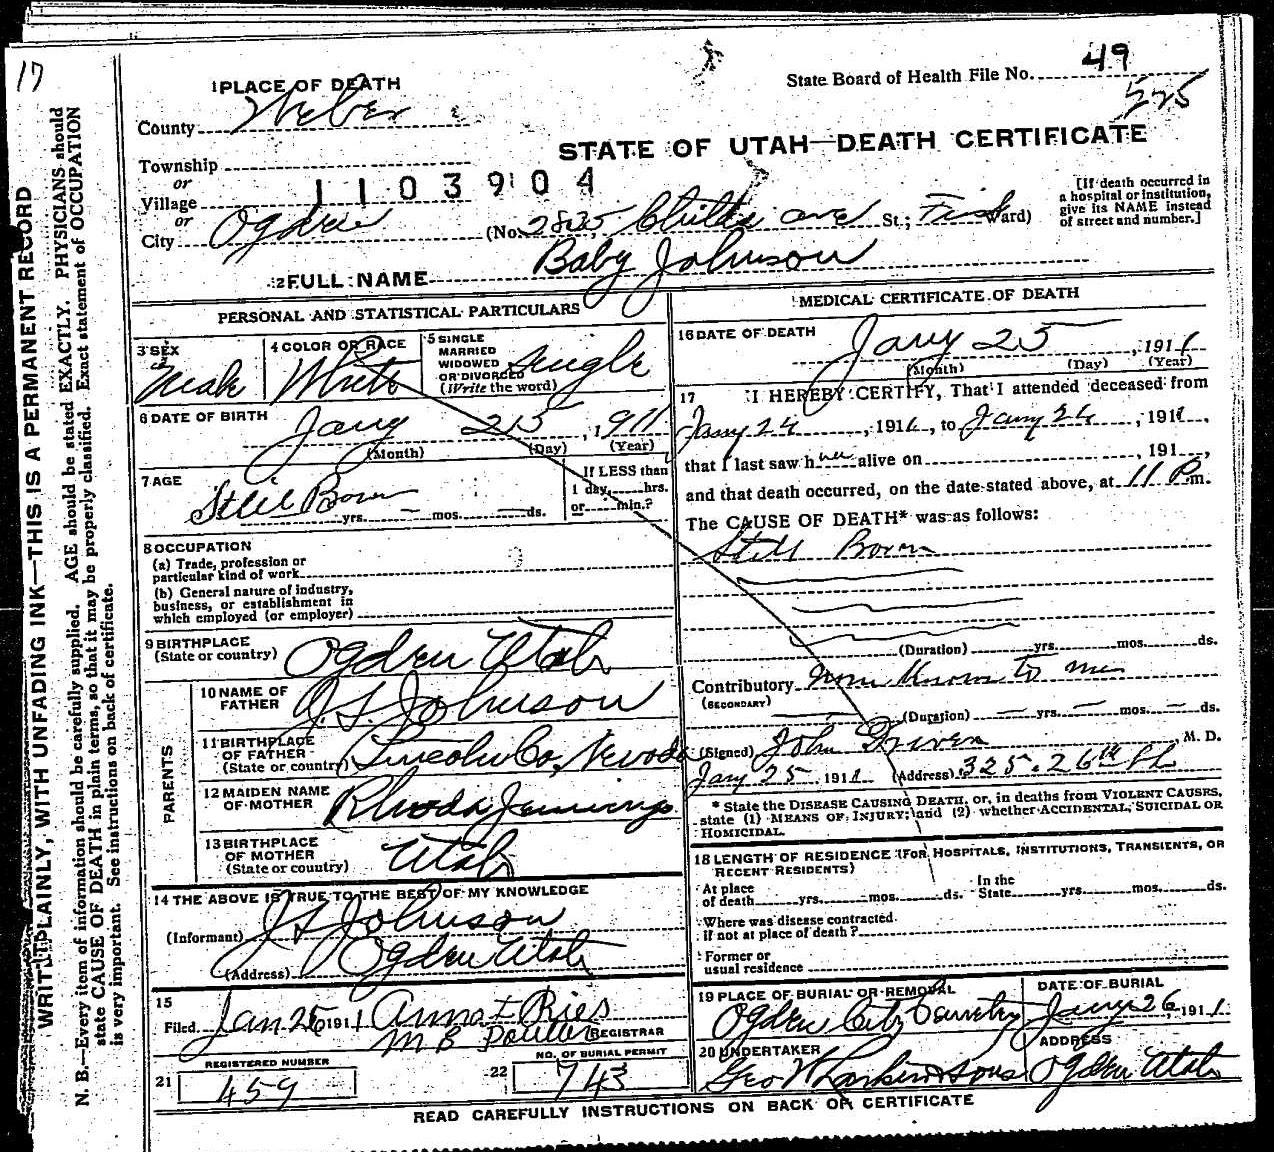 17
49
State Board of Health File No.
525
1 PLACE OF DEATH
County Weber
STATE OF UTAH—DEATH CERTIFICATE
Township
or
Village
1103904
or
City Ogden (No. 2835 Childs ave St.; Ward)
[If death occurred in
a hospital or institution,
give its NAME instead
of street and number.]
2 FULL NAME Baby Johnson
PERSONAL AND STATISTICAL PARTICULARS
3 SEX
Male
4 COLOR OR RACE
White
5 SINGLE
MARRIED
WIDOWED
OR DIVORCED
(Write the word)
Single
6 DATE OF BIRTH
Jany 25, 1911
(Month) (Day) (Year)
7 AGE
Still Born
yrs. mos. ds.
If LESS than
1 day, hrs.
or min.?
8 OCCUPATION
(a) Trade, profession or
particular kind of work
(b) General nature of industry,
business, or establishment in
which employed (or employer)
9 BIRTHPLACE
(State or country) Ogden Utah
PARENTS
10 NAME OF
FATHER J. S. Johnson
11 BIRTHPLACE
OF FATHER
(State or country) Lincoln Co, Nevada
12 MAIDEN NAME
OF MOTHER Rhoda Jennings
13 BIRTHPLACE
OF MOTHER
(State or country) Utah
14 THE ABOVE IS TRUE TO THE BEST OF MY KNOWLEDGE
(Informant) J S Johnson
(Address) Ogden Utah
15
Filed Jan 26 1911 Anna Ries
M B Poulter REGISTRAR
REGISTERED NUMBER
21 459
NO. OF BURIAL PERMIT
22 743
MEDICAL CERTIFICATE OF DEATH
16 DATE OF DEATH
Jany 25, 1911
(Month) (Day) (Year)
17 I HEREBY CERTIFY, That I attended deceased from
Jany 24, 1911, to Jany 24, 1911,
that I last saw h alive on , 191 ,
and that death occurred, on the date stated above, at 11 P.m.
The CAUSE OF DEATH* was as follows:
Still Born
(Duration) yrs. mos. ds.
Contributory None Known to me
(SECONDARY)
(Duration) yrs. mos. ds.
(Signed) John Driver, M. D.
Jany 25, 1911 (Address) 325. 26th St
* State the DISEASE CAUSING DEATH, or, in deaths from VIOLENT CAUSES,
state (1) MEANS OF INJURY; and (2) whether ACCIDENTAL, SUICIDAL OR
HOMICIDAL.
18 LENGTH OF RESIDENCE (FOR HOSPITALS, INSTITUTIONS, TRANSIENTS, OR
RECENT RESIDENTS)
At place
of death yrs. mos. ds.
In the
State yrs. mos. ds.
Where was disease contracted
if not at place of death?
Former or
usual residence
19 PLACE OF BURIAL OR REMOVAL
Ogden City Cemetery
DATE OF BURIAL
Jany 26, 1911
20 UNDERTAKER
Geo W Larkin & Sons
ADDRESS
Ogden Utah
READ CAREFULLY INSTRUCTIONS ON BACK OF CERTIFICATE
WRITE PLAINLY, WITH UNFADING INK—THIS IS A PERMANENT RECORD
N. B.—Every item of information should be carefully supplied. AGE should be stated EXACTLY. PHYSICIANS should
state CAUSE OF DEATH in plain terms, so that it may be properly classified. Exact statement of OCCUPATION
is very important. See instructions on back of certificate.